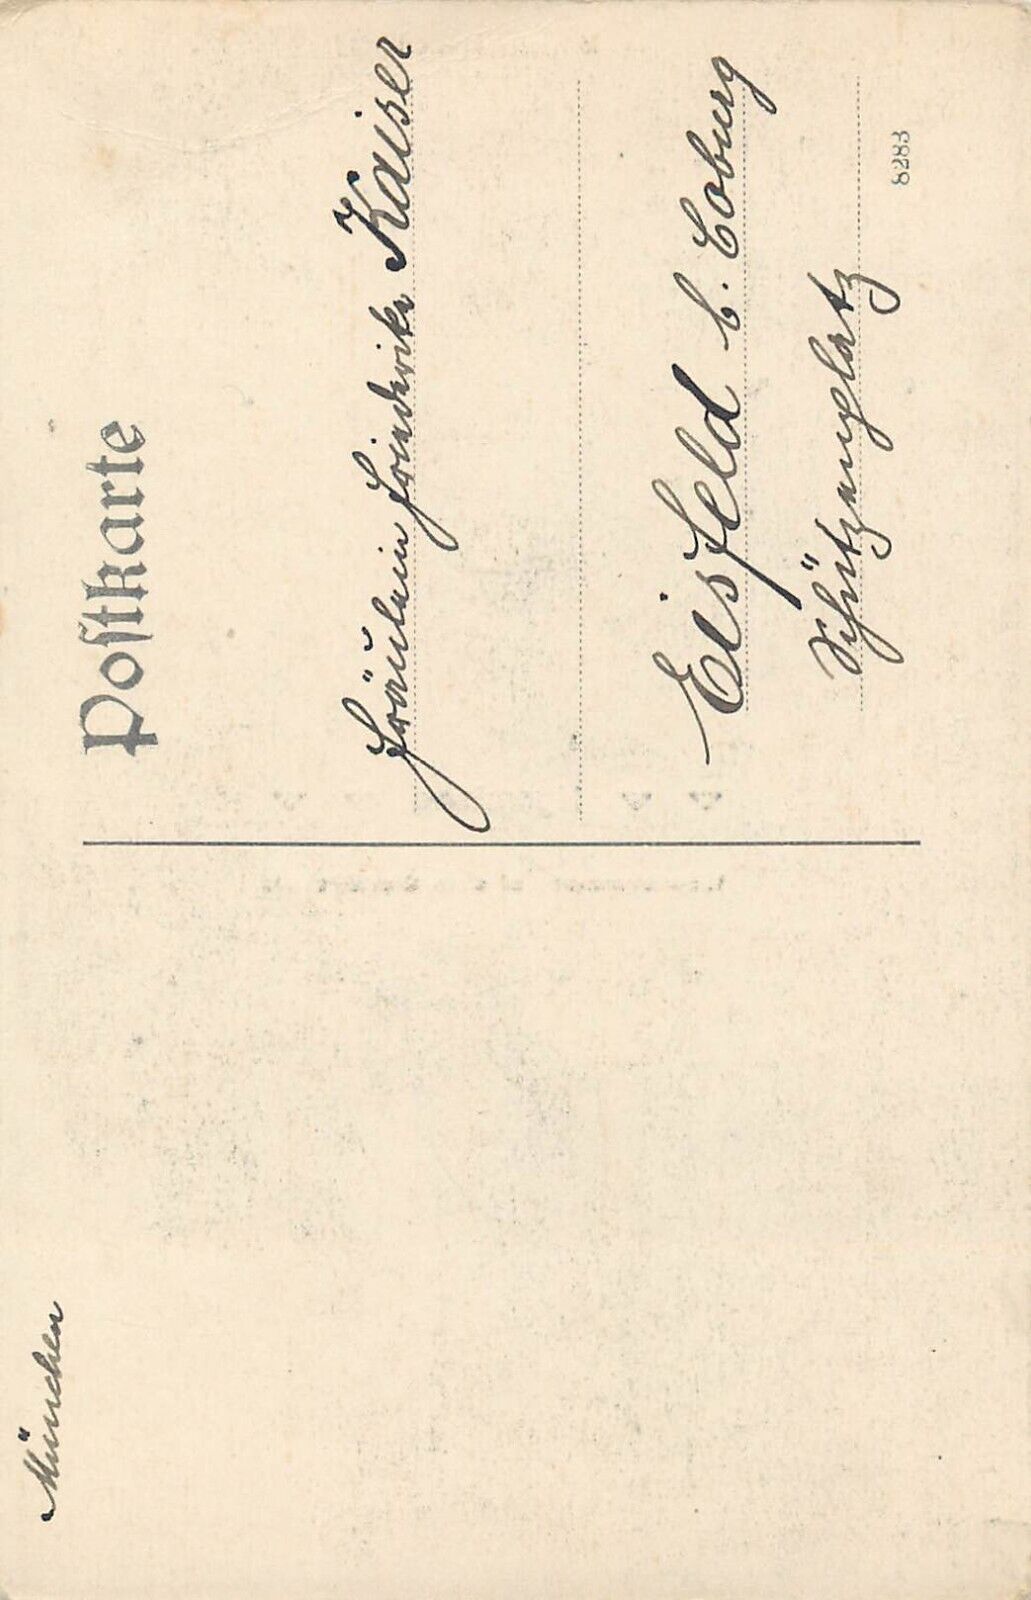 Postkarte
Fräulein Friederike Kaiser
Eisfeld b. Coburg
Schützenplatz
8283
München